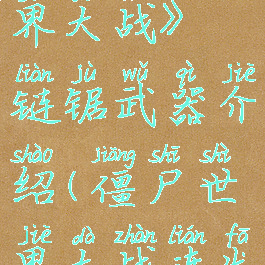 界大战》
liàn jù wǔ qì jiè
链锯武器介
shào jiāng shī shì
绍(僵尸世
jiè dà zhàn lián fā